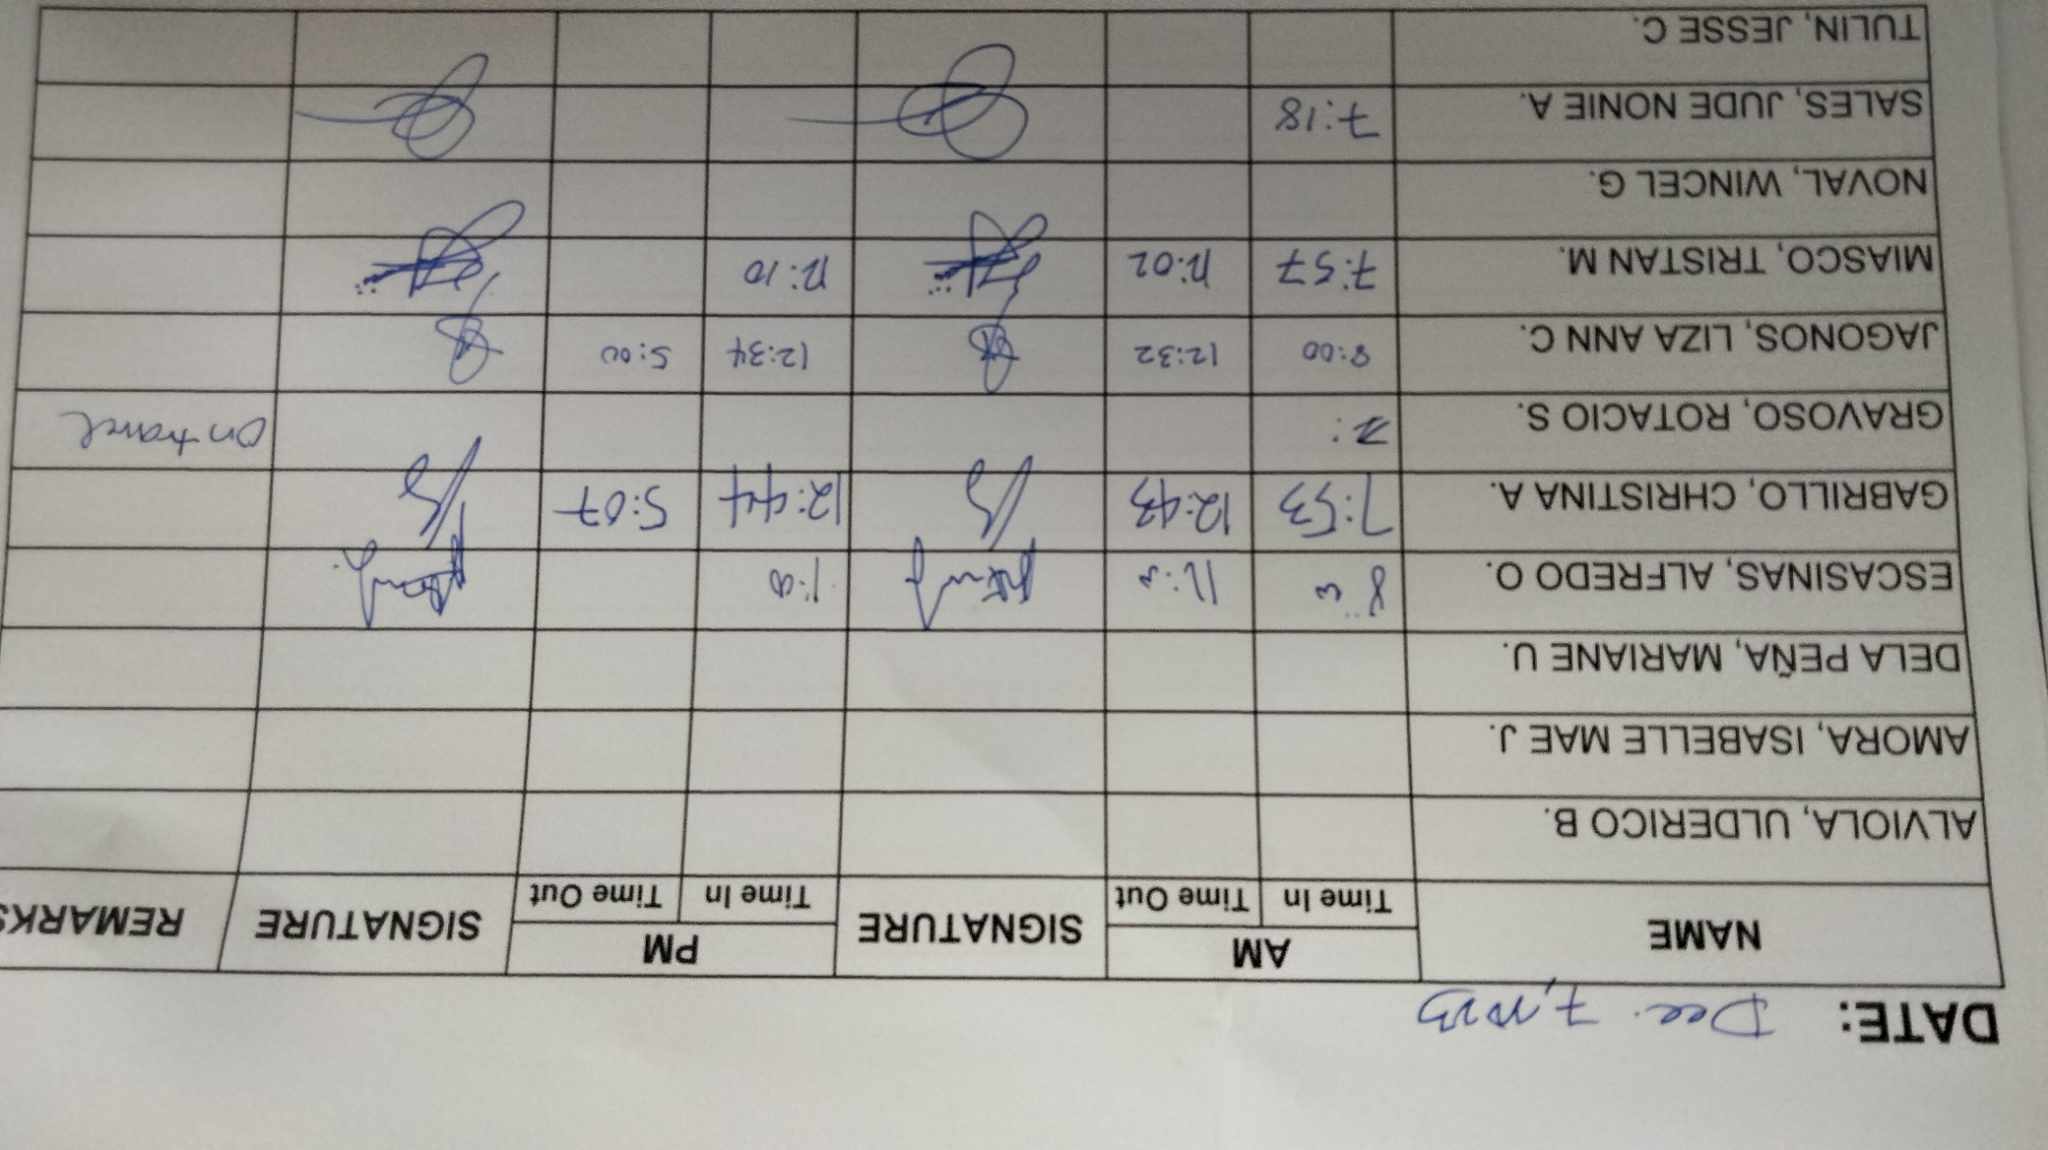 DATE: Dec. 7, 2023
NAME AM SIGNATURE PM SIGNATURE REMARKS
Time In Time Out Time In Time Out
ALVIOLA, ULDERICO B.
AMORA, ISABELLE MAE J.
DELA PEÑA, MARIANE U.
ESCASINAS, ALFREDO O. 8:00 1:00
GABRILLO, CHRISTINA A. 7:53 12:43 12:44 5:07
GRAVOSO, ROTACIO S. 7: on travel
JAGONOS, LIZA ANN C. 8:00 12:32 12:34 5:00
MIASCO, TRISTAN M. 7:57 12:02 12:10
NOVAL, WINCEL G.
SALES, JUDE NONIE A. 7:18
TULIN, JESSE C.